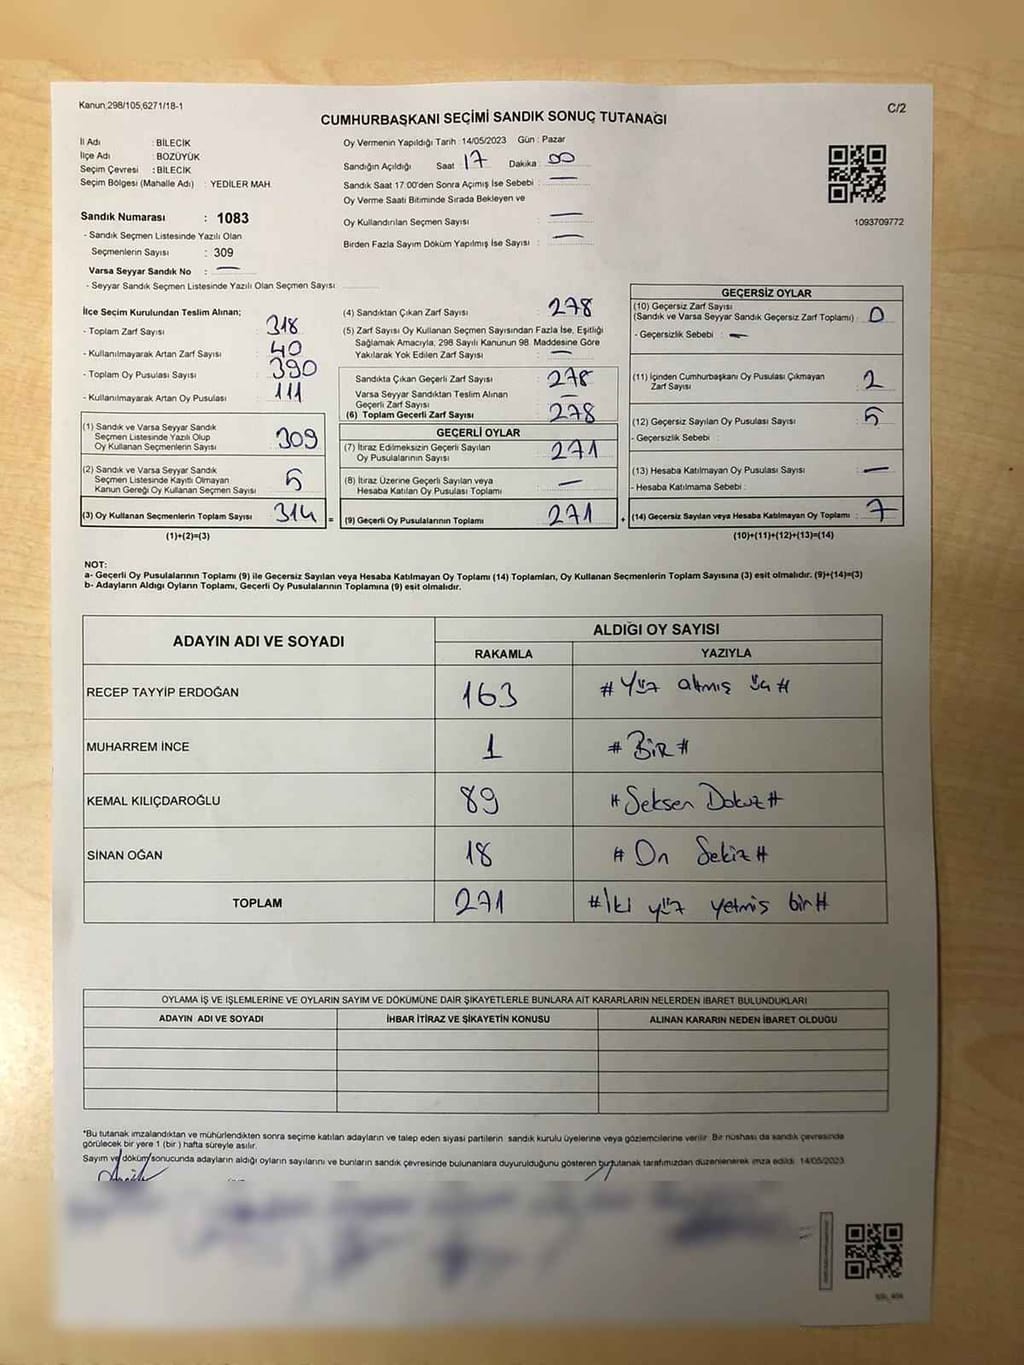 Kanun;298/105;6271/18-1
C/2
CUMHURBAŞKANI SEÇİMİ SANDIK SONUÇ TUTANAĞI
İl Adı : BİLECİK
İlçe Adı : BOZÜYÜK
Seçim Çevresi : BİLECİK
Seçim Bölgesi (Mahalle Adı) : YEDİLER MAH.
Sandık Numarası : 1083
- Sandık Seçmen Listesinde Yazılı Olan
Seçmenlerin Sayısı : 309
Varsa Seyyar Sandık No : —
- Seyyar Sandık Seçmen Listesinde Yazılı Olan Seçmen Sayısı :
Oy Vermenin Yapıldığı Tarih :14/05/2023 Gün : Pazar
Sandığın Açıldığı Saat : 17 Dakika : 00
Sandık Saat 17:00'den Sonra Açımış İse Sebebi : —
Oy Verme Saati Bitiminde Sırada Bekleyen ve
Oy Kullandırılan Seçmen Sayısı : —
Birden Fazla Sayım Döküm Yapılmış İse Sayısı : —
1093709772
İlçe Seçim Kurulundan Teslim Alınan;
- Toplam Zarf Sayısı : 318
- Kullanılmayarak Artan Zarf Sayısı : 40
- Toplam Oy Pusulası Sayısı : 390
- Kullanılmayarak Artan Oy Pusulası : 111
(1) Sandık ve Varsa Seyyar Sandık
Seçmen Listesinde Yazılı Olup
Oy Kullanan Seçmenlerin Sayısı : 309
(2) Sandık ve Varsa Seyyar Sandık
Seçmen Listesinde Kayıtlı Olmayan
Kanun Gereği Oy Kullanan Seçmen Sayısı : 5
(3) Oy Kullanan Seçmenlerin Toplam Sayısı : 314
(1)+(2)=(3)
(4) Sandıktan Çıkan Zarf Sayısı : 278
(5) Zarf Sayısı Oy Kullanan Seçmen Sayısından Fazla İse, Eşitliği
Sağlamak Amacıyla; 298 Sayılı Kanunun 98. Maddesine Göre
Yakılarak Yok Edilen Zarf Sayısı : —
Sandıkta Çıkan Geçerli Zarf Sayısı : 278
Varsa Seyyar Sandıktan Teslim Alınan
Geçerli Zarf Sayısı : —
(6) Toplam Geçerli Zarf Sayısı : 278
GEÇERLİ OYLAR
(7) İtiraz Edilmeksizin Geçerli Sayılan
Oy Pusulalarının Sayısı : 271
(8) İtiraz Üzerine Geçerli Sayılan veya
Hesaba Katılan Oy Pusulası Toplamı : —
= (9) Geçerli Oy Pusulalarının Toplamı : 271 +
GEÇERSİZ OYLAR
(10) Geçersiz Zarf Sayısı
(Sandık ve Varsa Seyyar Sandık Geçersiz Zarf Toplamı) : 0
- Geçersizlik Sebebi : —
(11) İçinden Cumhurbaşkanı Oy Pusulası Çıkmayan
Zarf Sayısı : 2
(12) Geçersiz Sayılan Oy Pusulası Sayısı : 5
- Geçersizlik Sebebi :
(13) Hesaba Katılmayan Oy Pusulası Sayısı : —
- Hesaba Katılmama Sebebi :
(14) Geçersiz Sayılan veya Hesaba Katılmayan Oy Toplamı : 7
(10)+(11)+(12)+(13)=(14)
NOT:
a- Geçerli Oy Pusulalarının Toplamı (9) ile Geçersiz Sayılan veya Hesaba Katılmayan Oy Toplamı (14) Toplamları, Oy Kullanan Seçmenlerin Toplam Sayısına (3) eşit olmalıdır. (9)+(14)=(3)
b- Adayların Aldığı Oyların Toplamı, Geçerli Oy Pusulalarının Toplamına (9) eşit olmalıdır.
ADAYIN ADI VE SOYADI ALDIĞI OY SAYISI
RAKAMLA YAZIYLA
RECEP TAYYİP ERDOĞAN 163 # Yüz altmış üç #
MUHARREM İNCE 1 # BİR #
KEMAL KILIÇDAROĞLU 89 # Seksen Dokuz #
SİNAN OĞAN 18 # On Sekiz #
TOPLAM 271 # İki yüz yetmiş bir #
OYLAMA İŞ VE İŞLEMLERİNE VE OYLARIN SAYIM VE DÖKÜMÜNE DAİR ŞİKAYETLERLE BUNLARA AİT KARARLARIN NELERDEN İBARET BULUNDUKLARI
ADAYIN ADI VE SOYADI İHBAR İTİRAZ VE ŞİKAYETİN KONUSU ALINAN KARARIN NEDEN İBARET OLDUĞU
*Bu tutanak imzalandıktan ve mühürlendikten sonra seçime katılan adayların ve talep eden siyasi partilerin sandık kurulu üyelerine veya gözlemcilerine verilir. Bir nüshası da sandık çevresinde
görülecek bir yere 1 (bir) hafta süreyle asılır.
Sayım ve döküm sonucunda adayların aldığı oyların sayılarını ve bunların sandık çevresinde bulunanlara duyurulduğunu gösteren bu tutanak tarafımızdan düzenlenerek imza edildi. 14/05/2023